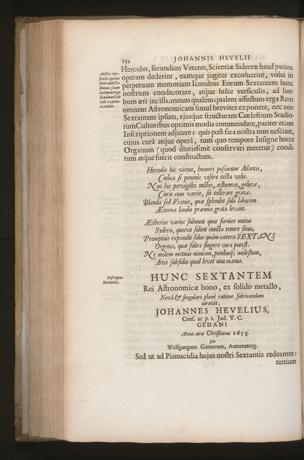 254 JOHANNIS HEVELII
Hercules, secundum Veteres, Scientiæ Sidereæ haud parùm
operam dederint, eamque jugiter excoluerint, volui in
perpetuam memoriam Iconibus Eorum Sextantem hunc
nostrum condecorare, atque hisce versiculis, ad lim-
bum æri incisis, meum qualem qualem affectum erga Rem
omnem Astronomicam simul breviter exponere, nec non
Sextantem ipsum, ejusque structuram Cœlestium Studio-
rum Cultoribus optimis modis commendare, pariter etiam
Inscriptionem adjicere: quo post fata nostra non nesciant,
cujus curâ atque operâ, tum quo tempore Insigne hocce
Organum (quod diutissimè conservari meretur) condi-
tum atque fuerit constructum.
Herculis hic virtus, humeri poscuntur Atlantis,
Cœlica si penitùs visere tecta velis.
Non hîc pervigiles noctes, æstumve, geluve,
Cura cum variis, sit tolerare grave.
Blanda sed Uranie, quæ splendet sola laborum
Æternæ laudis præmia grata levant.
Ætherios varios subeunt quæ fornice motus
Sydera, quove sident cuncta tenore sinu,
Promptius expandit sidus quàm cætera SEXTANS
Organa, quæ solers fingere cura potest.
Ne molem metuas nimiam, pondusq; molestum,
Artis subsidio quod levat una manus.
HUNC SEXTANTEM
Rei Astronomicæ bono, ex solido metallo,
Novâ & singulari planè ratione fabricandum
curavit,
JOHANNES HEVELIUS,
Cons. ac p. t. Jud. V. C.
GEDANI
Anno æræ Christianæ 1658.
per
Wolfgangum Günterum, Automaturg.
Sed ut ad Pinnacidia hujus nostri Sextantis redeamus:
tertium